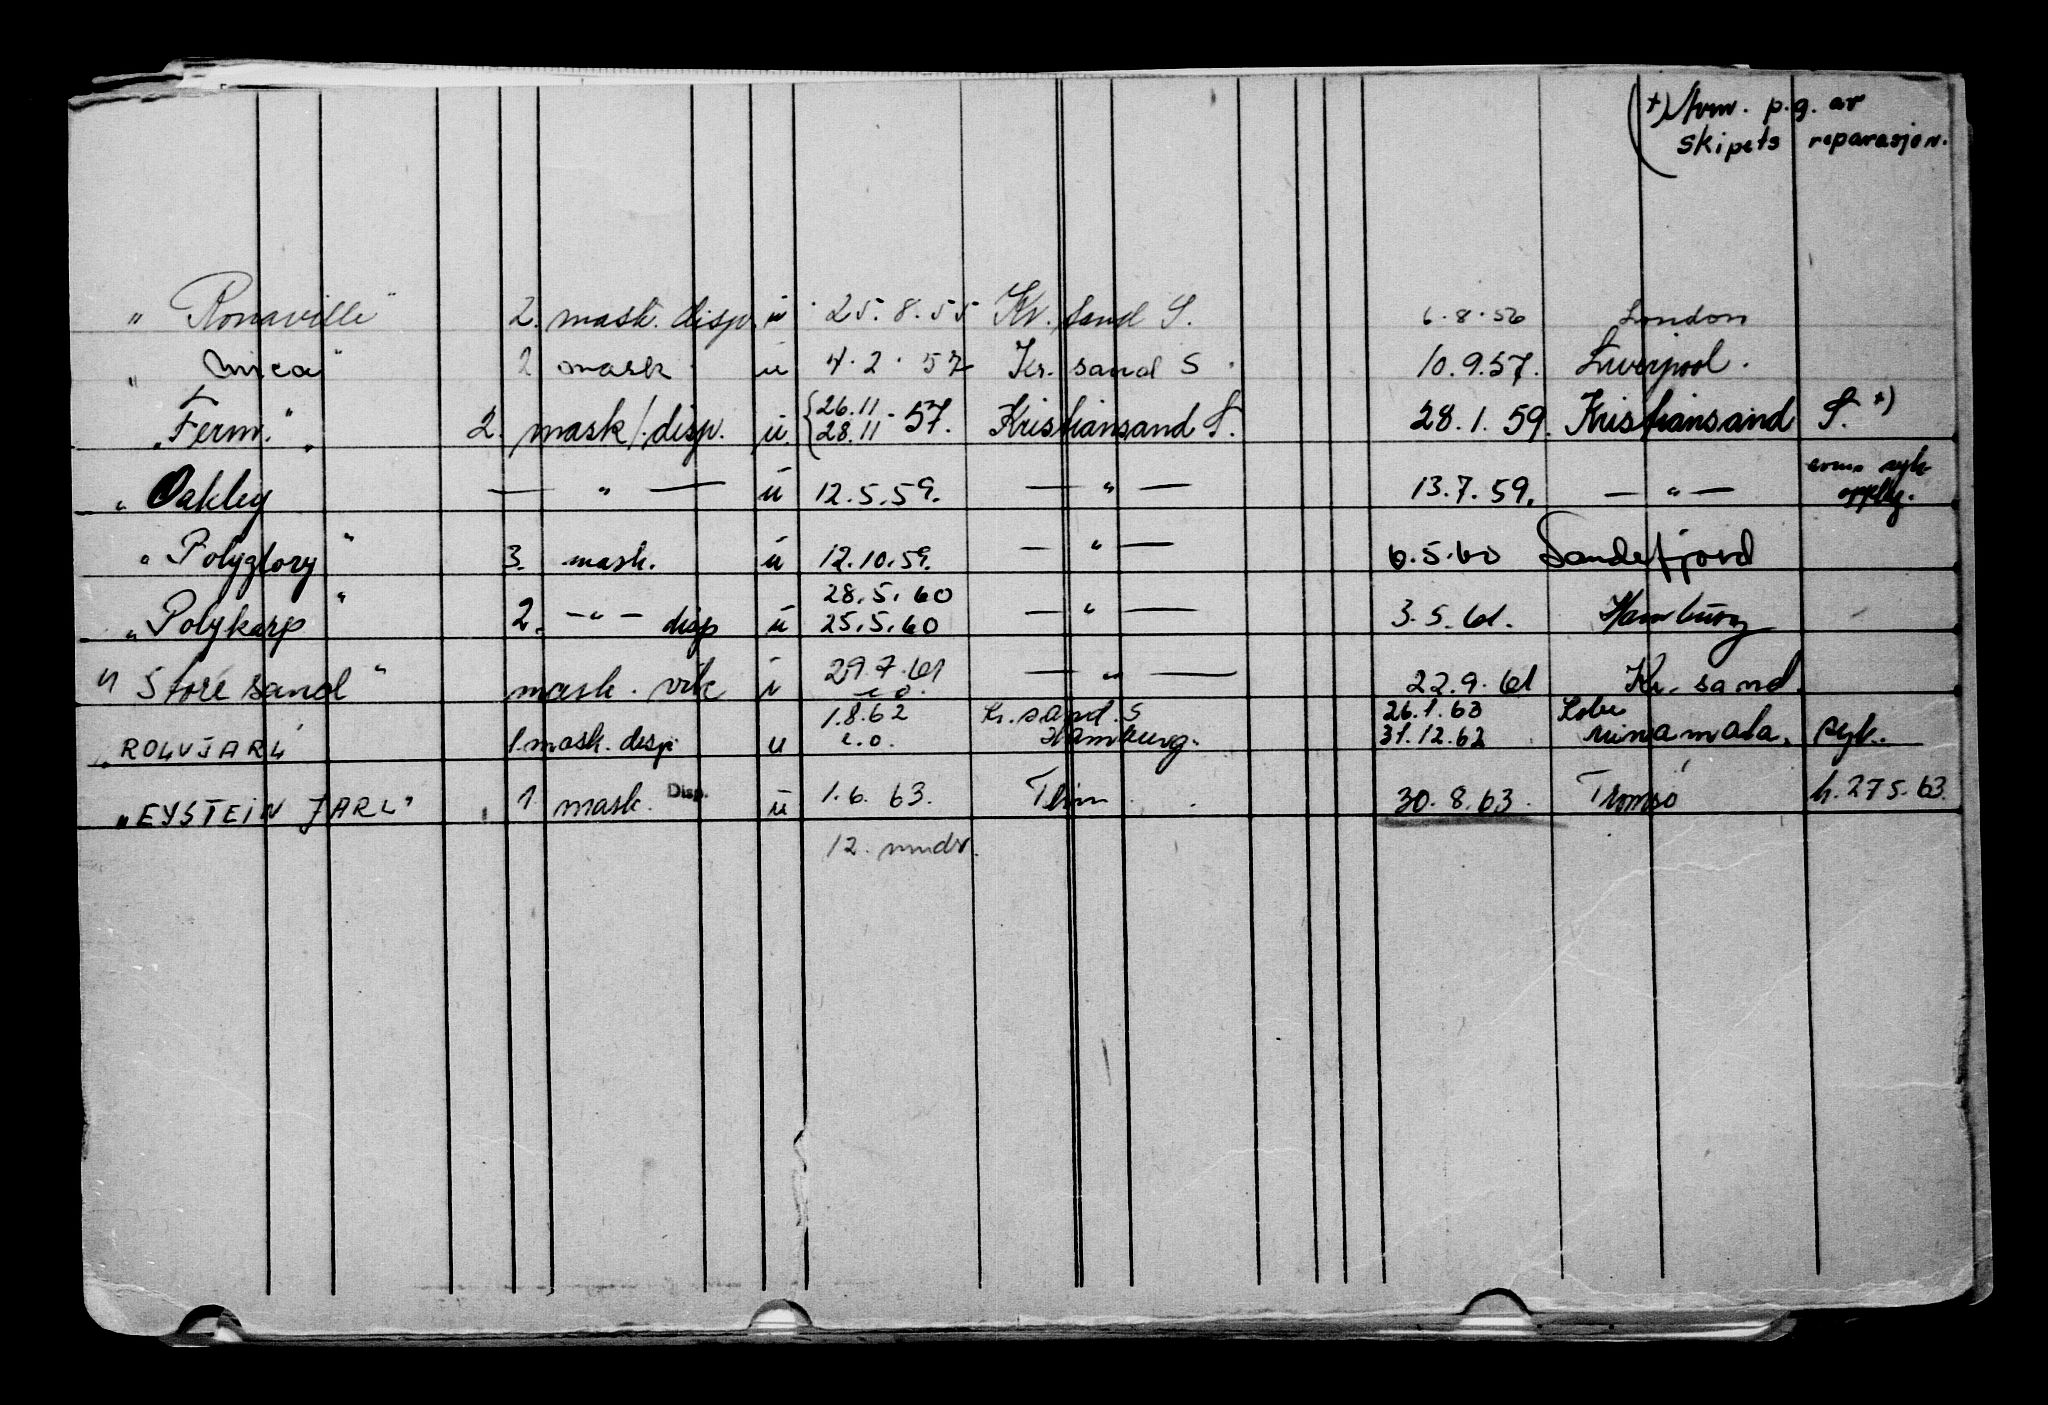 +) Avm. p.g. av
skipets reparasjon.
"Ronaville" 2. mask. disp. u 25.8.55 Kr. sand S. 6.8.56 London
"Mica" 2 mask u 4.2.57 Kr. sand S. 10.9.57. Liverpool.
"Ferm." 2. mask/.disp. u. {26.11 28.11 .57. Kristiansand S. 28.1.59. Kristiansand S. +)
"Oakley — " — u 12.5.59. — " — 13.7.59. — " —
"Polyglory" 3. mask. u 12.10.59. — " — 6.5.60 Sandefjord
28.5.60
"Polykarp" 2. — " — disp u 25.5.60 — " — 3.5.61. Hamburg
"Store sand" mask. vik u 29.7.61 — " — 22.9.61 Kr. sand.
1.8.62 Kr. sand. S 26.1.63 Kobe
"ROLVJARL" 1. mask. disp u Hamburg. 31.12.62 Minamata. syk.
"EYSTEIN JARL" 1. mask. Disp. u 1.6.63. Thm 30.8.63. Tromsø h. 27.5.63.
12. mndr.